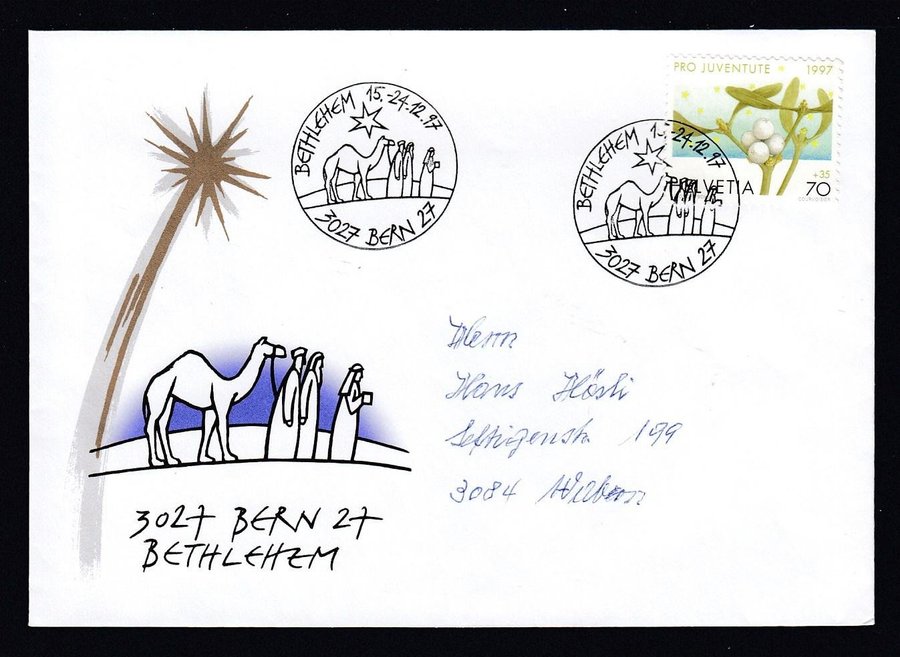 BETHLEHEM 15.-24.12.97
3027 BERN 27
BETHLEHEM 15.-24.12.97
3027 BERN 27
PRO JUVENTUTE 1997
HELVETIA
+35
70
Herrn
Hans Hösli
Seftigenstr. 199
3084 Wabern
3027 BERN 27
BETHLEHEM